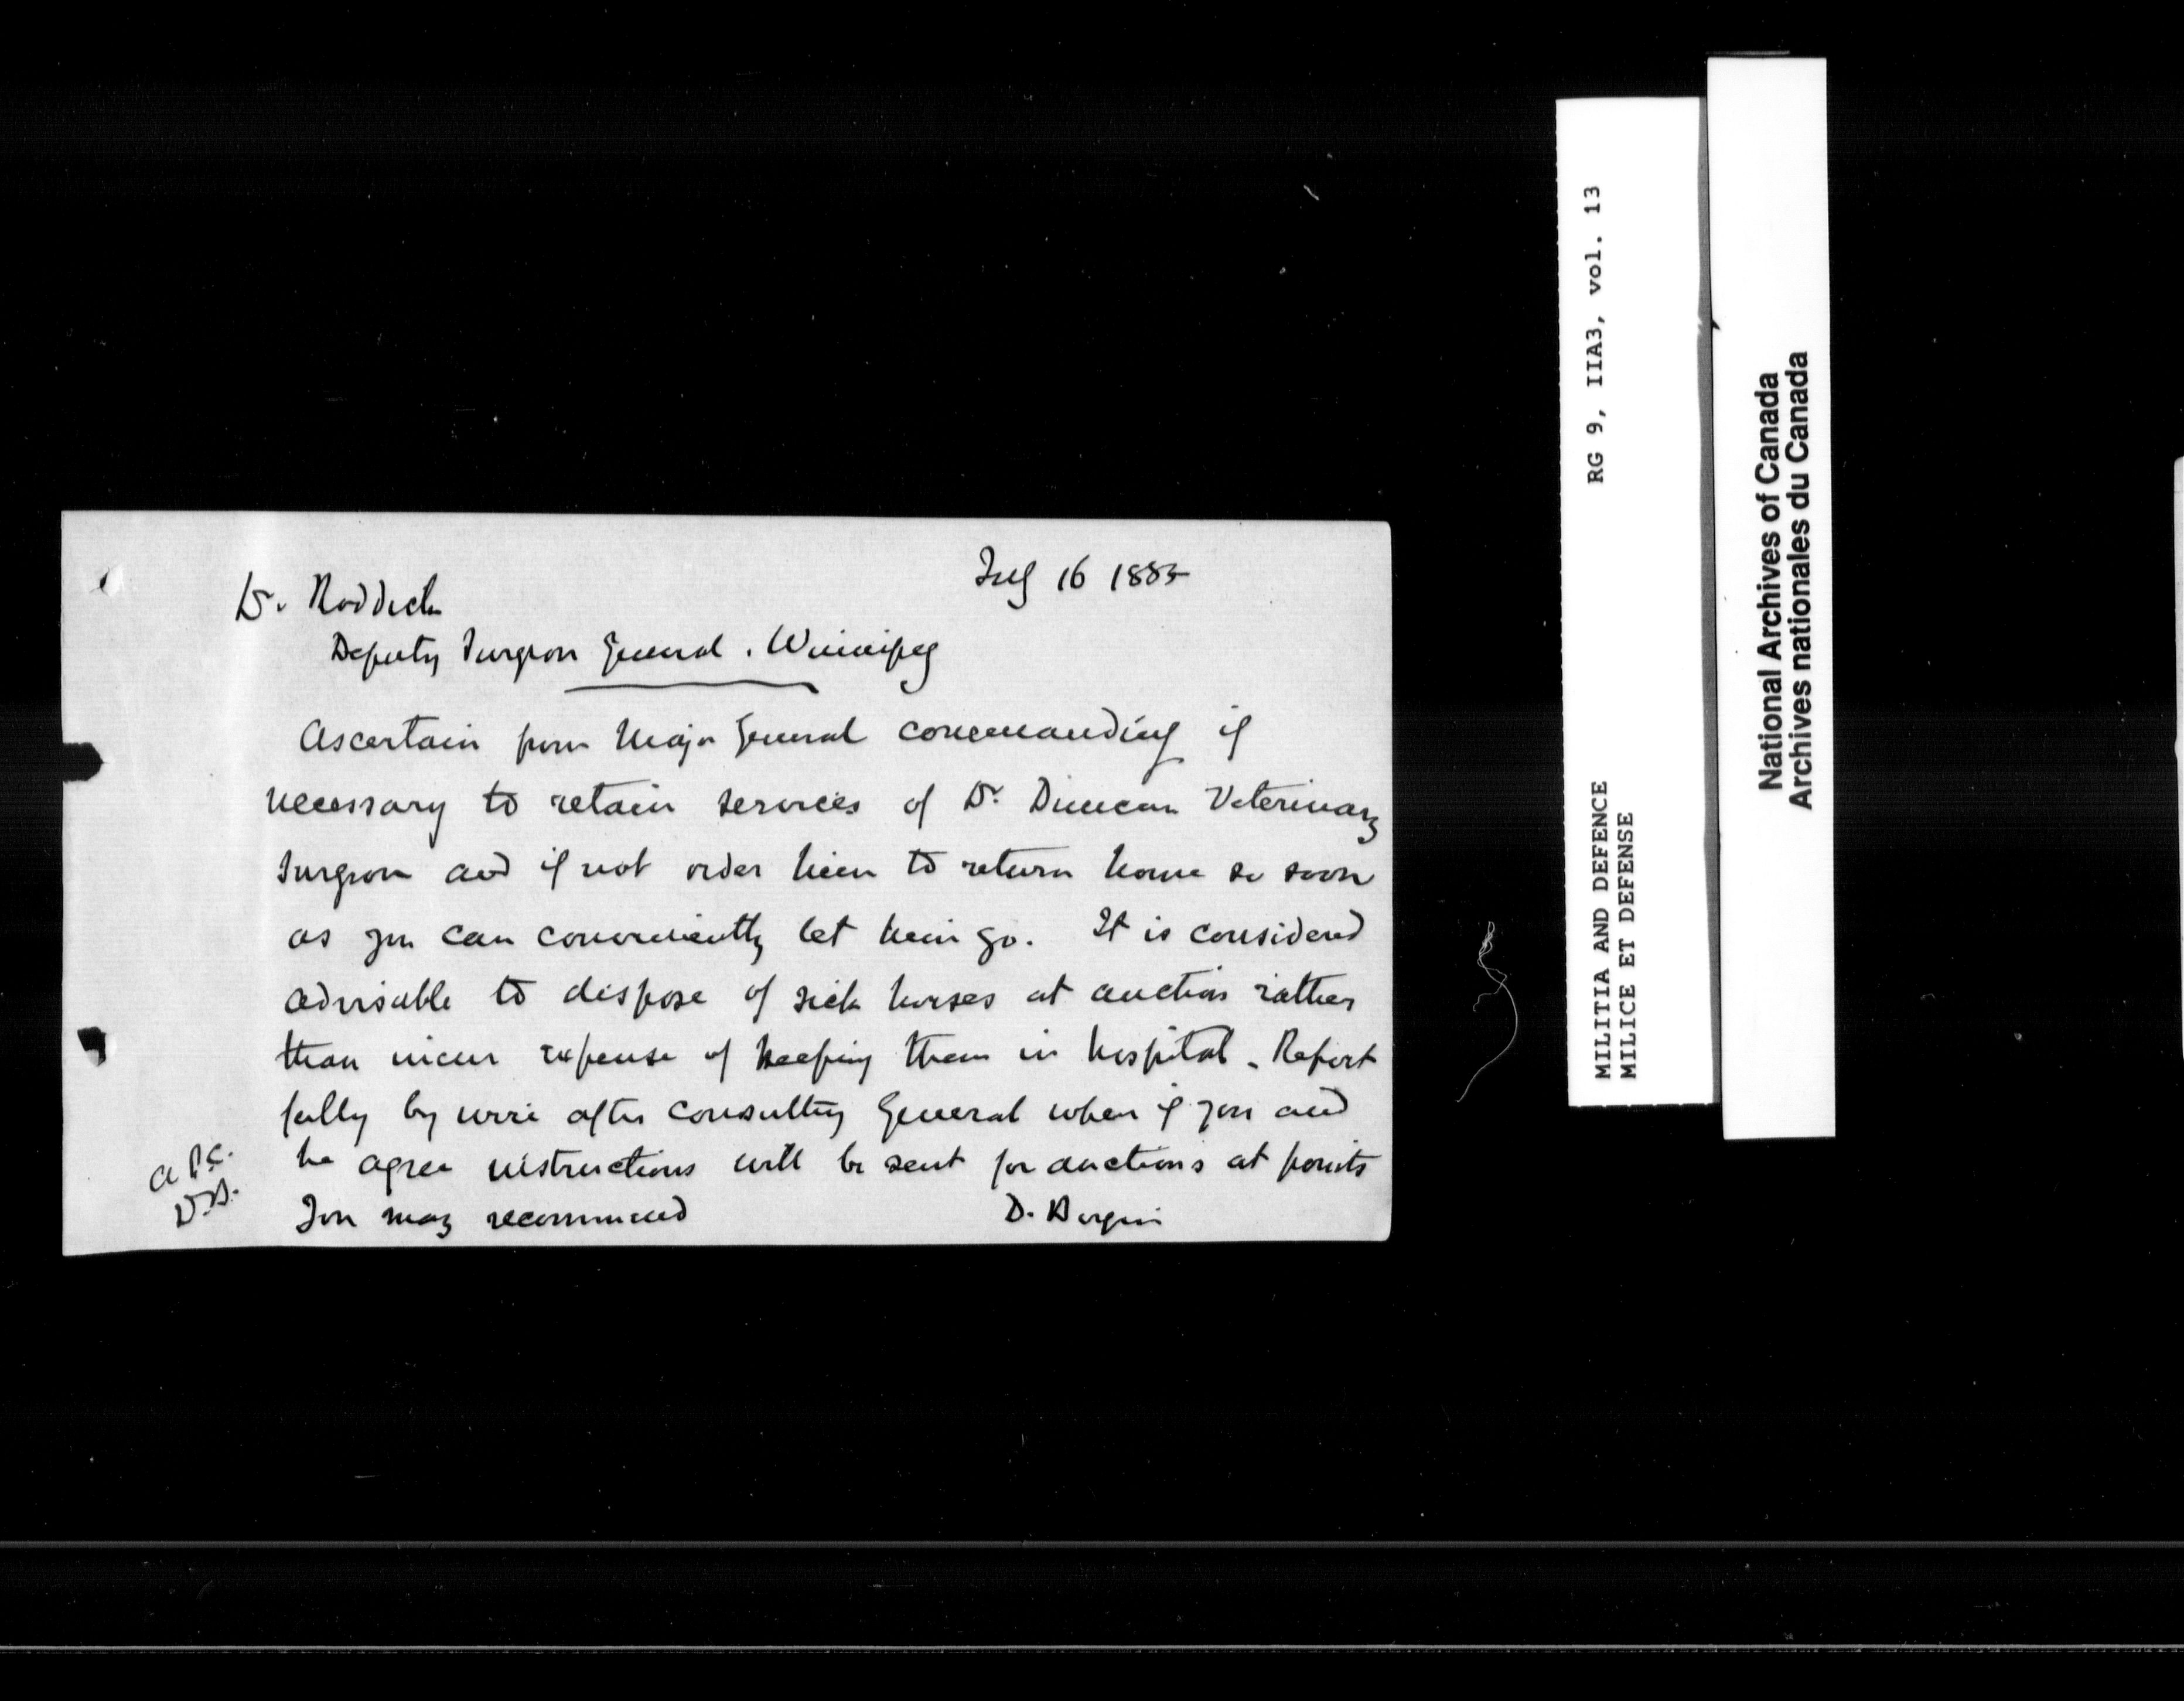 July 16 1885
Dr. Roddick
Deputy Surgeon General. Winnipeg
Ascertain from Major General commanding if
necessary to retain services of Dr. Duncan Veterinary
Surgeon and if not order him to return home so soon
as you can conveniently let him go. It is considered
advisable to dispose of sick horses at auction rather
than incur expense of keeping them in hospital. Report
fully by wire after consulting General when if you and
he agree instructions will be sent for auctions at points
you may recommend
D. Bergin
MILITIA AND DEFENCE RG 9, IIA3, vol. 13
MILICE ET DEFENSE
National Archives of Canada
Archives nationales du Canada